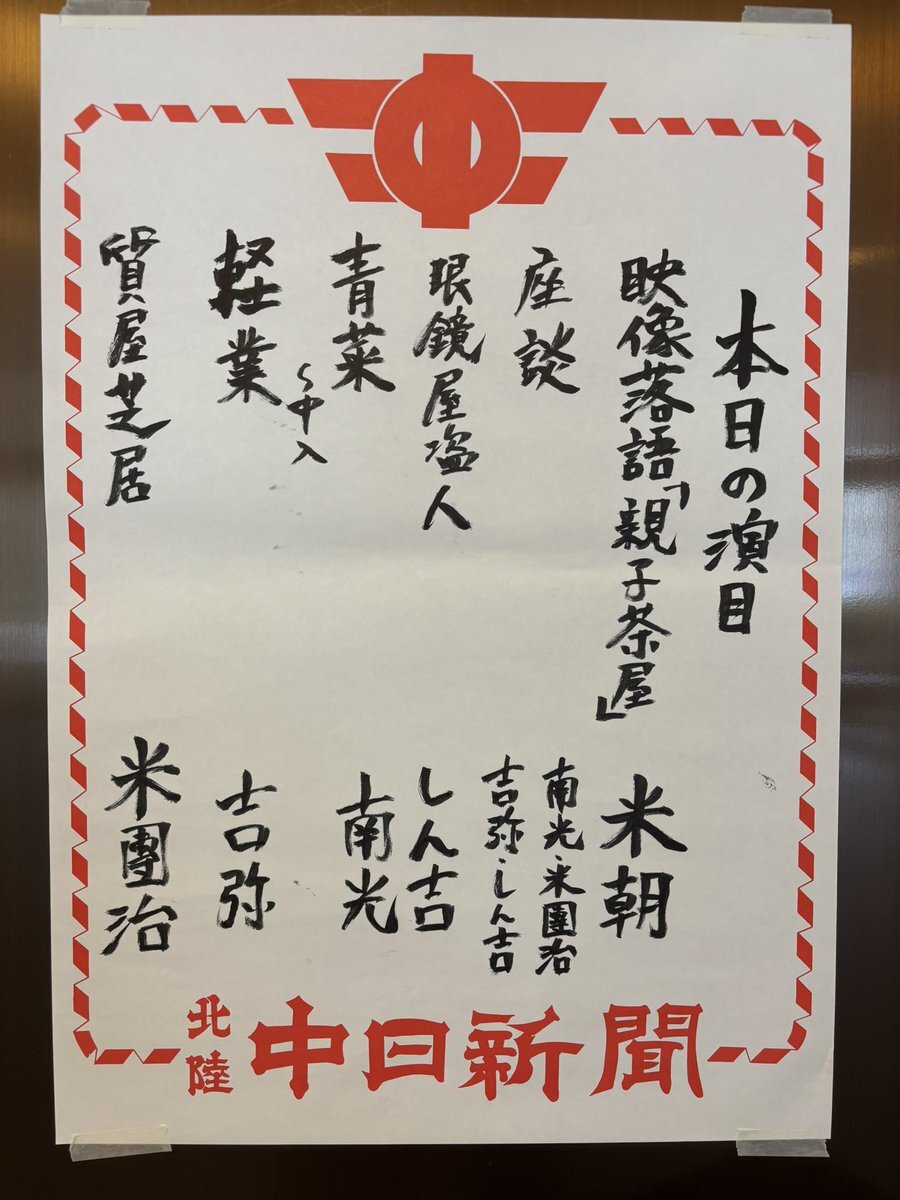 本日の演目
映像落語「親子茶屋」 米朝
座談 南光・米團治
吉弥・しん吉
眼鏡屋盗人 しん吉
青菜 南光
〜中入
軽業 吉弥
質屋芝居 米團治
北陸
中日新聞